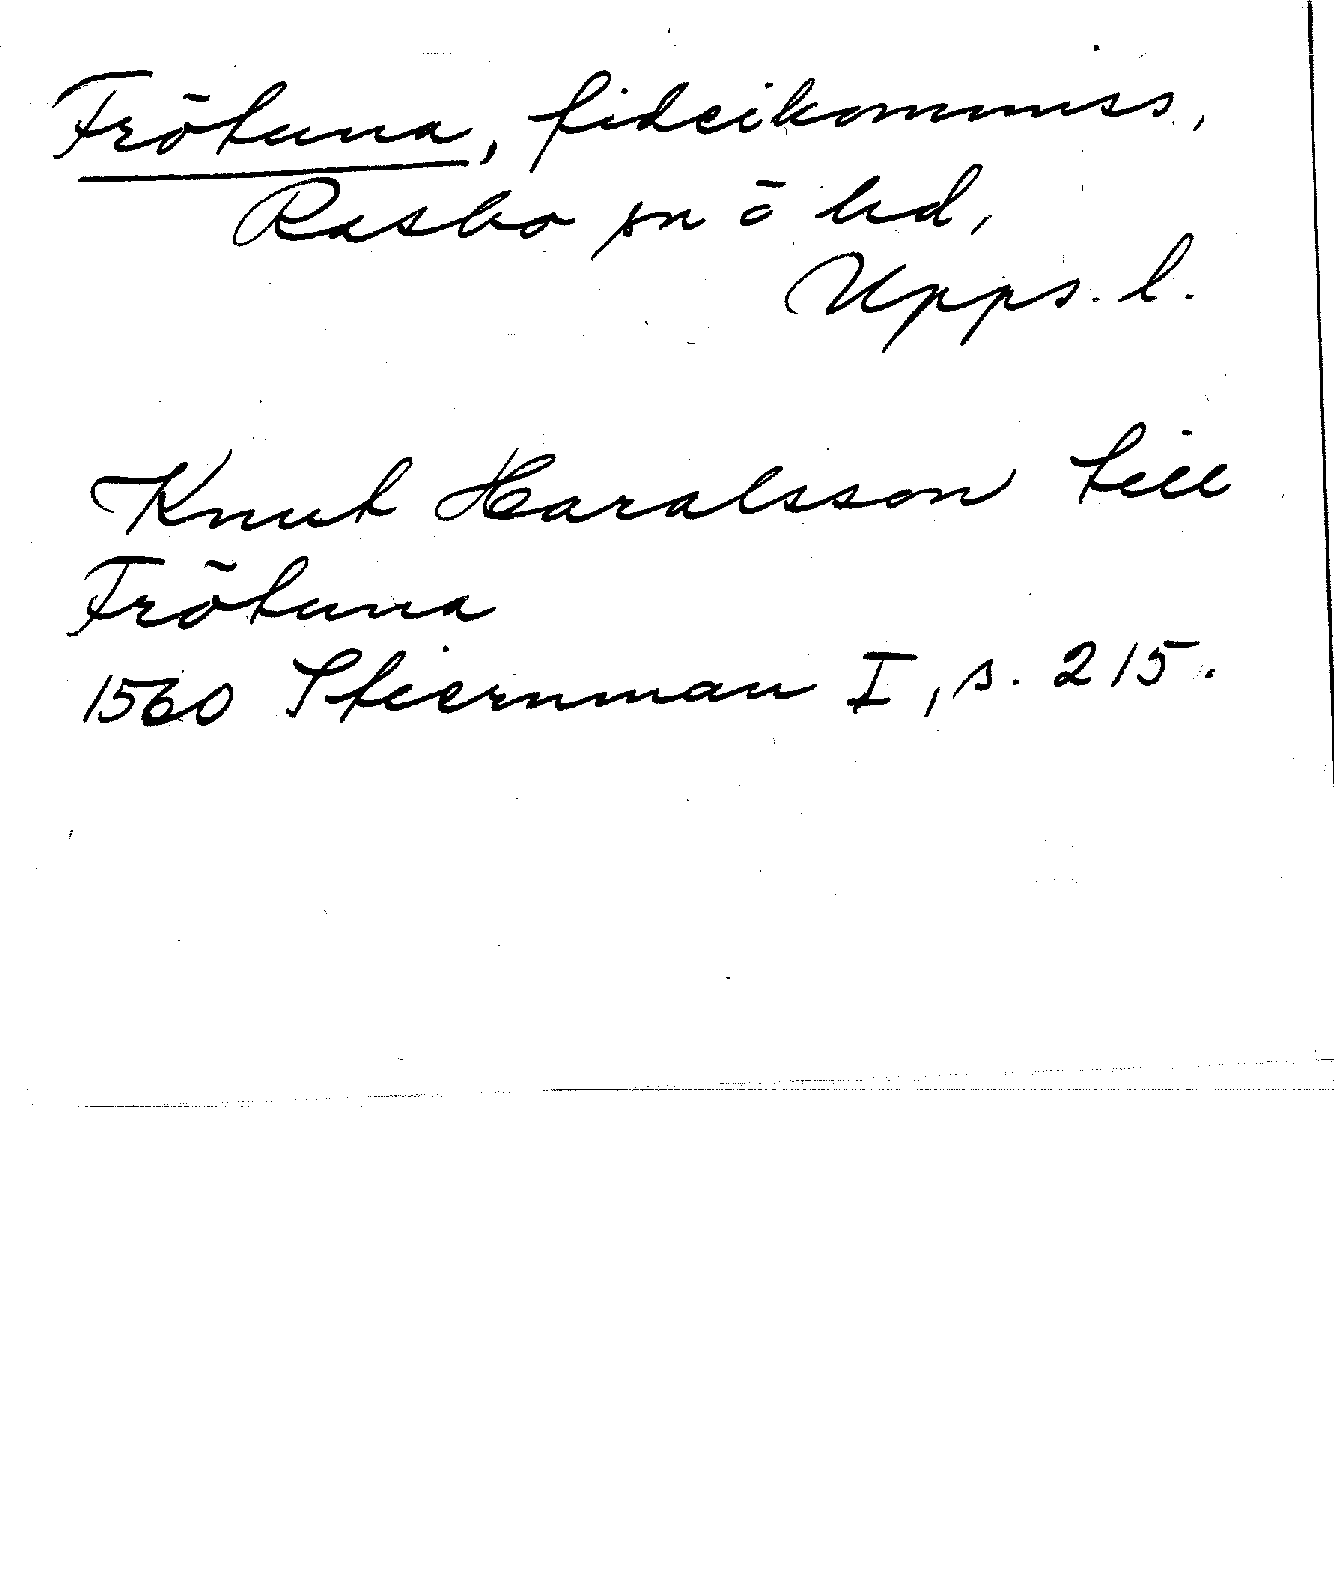 Frötuna, fideikommiss,
Rasbo sn o hd,
Upps. l.
Knut Haralsson till
Frötuna
1560 Stiernman I, s. 215.